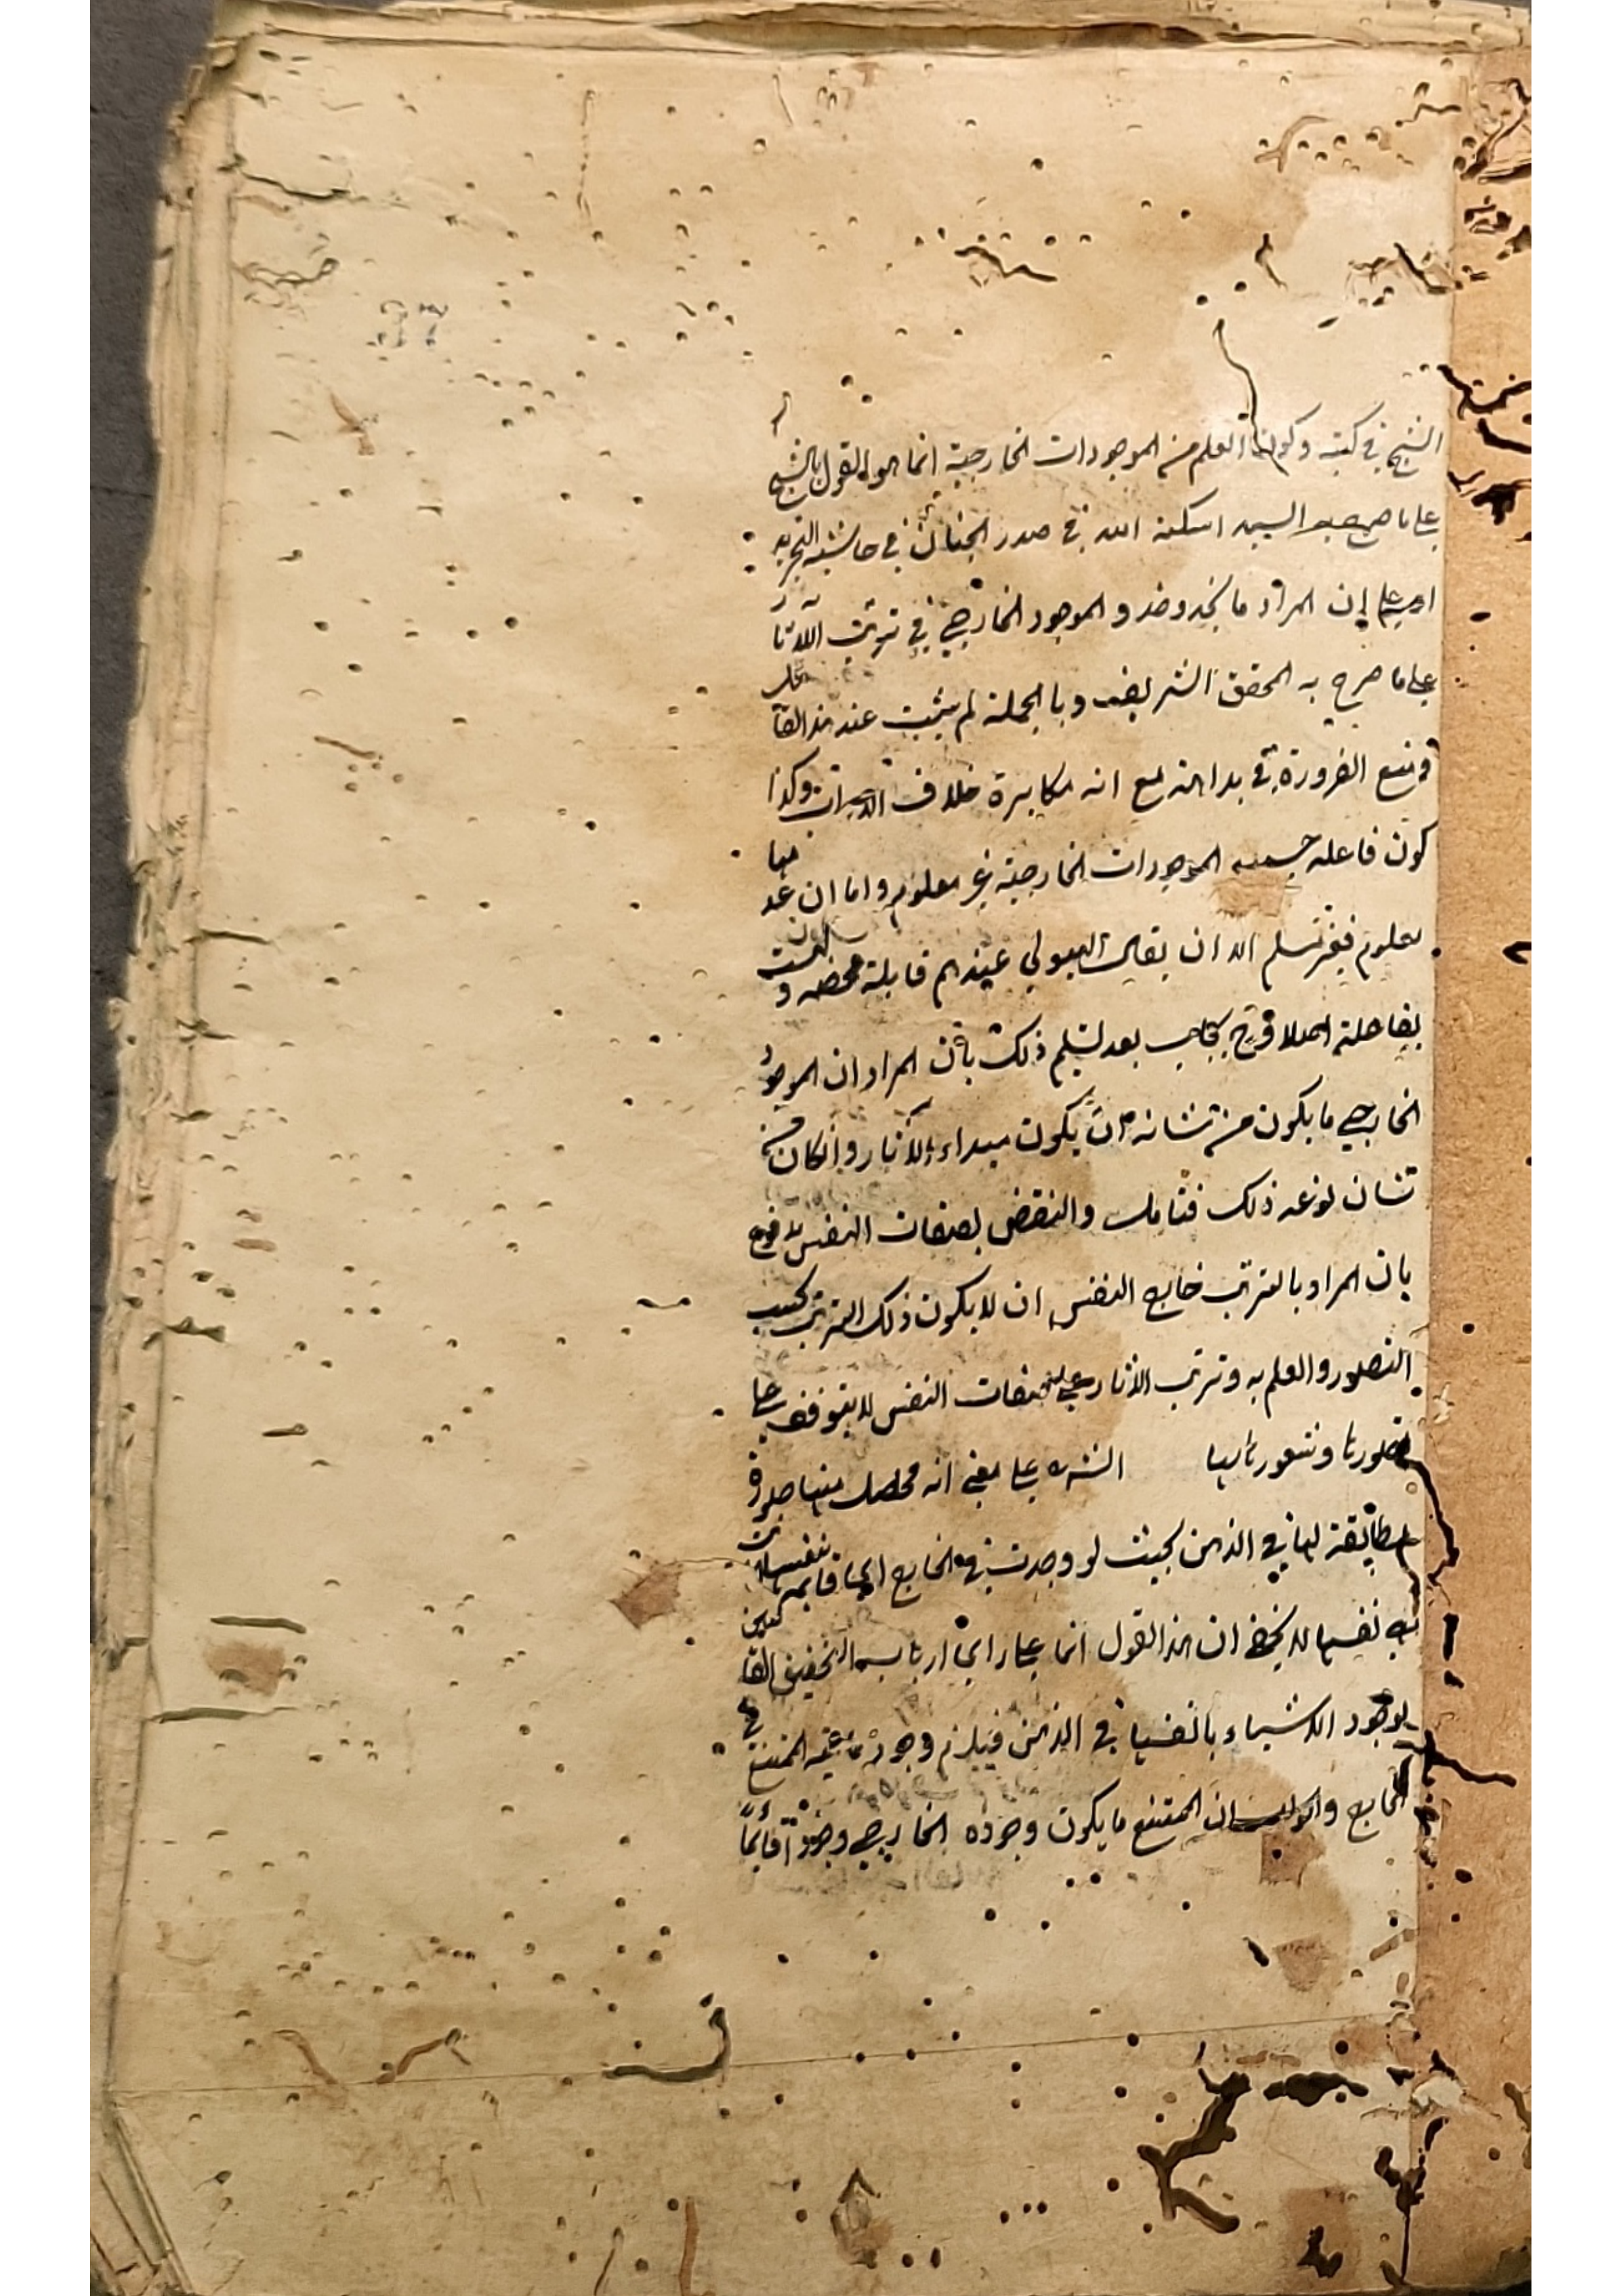 الشيخ في كتبه وكون العلم من الموجودات الخارجية انما هو القول بالشبح
على ما صرح به السيد اسكنه الله في صدر الجنان في حاشية التجريد
على ان المراد ما يحذو حذو الموجود الخارجي في ترتب الآثار
على ما صرح به المحقق الشريف وبالجملة لم يثبت عند هذا القائل
ومنع الضرورة في بداهته مع انه مكابرة خلاف وكذا
كون فاعله الموجودات الخارجية غير معلوم واما ان عد منها
معلوم فغير مسلم الا ان يقال الهيولى عندهم قابلة محضة وليست
بفاعلة اصلا وح يجاب بعد تسليم ذلك بان المراد ان الموجود
الخارجي ما يكون من شانه ان يكون مبداء للآثار وانكان من
شان نوعه ذلك فتامل والنقض بصفات النفس مدفوع
بان المراد بالترتب خارج النفس ان لا يكون ذلك الترتب بحسب
التصور والعلم به وترتب الاثار على صفات النفس لا يتوقف على
تصورنا وشعورنا بها الشره على معنى انه محصل منها صورة
مطابقة لها في الذهن بحيث لو وجدت في الخارج قائمة بنفسها
نفسها لا يخفى ان هذا القول انما على راى ارباب التحقيق القائلين
بوجود الاشياء بانفسها في الذهن فيلزم وجود الممتنع في
الخارج والجواب ان الممتنع ما يكون وجوده الخارجي وجودا قائما